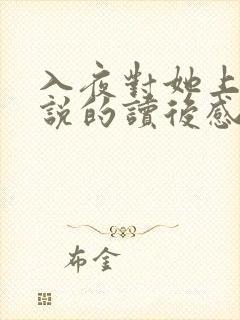 入夜對她上
說的讀後感
布金